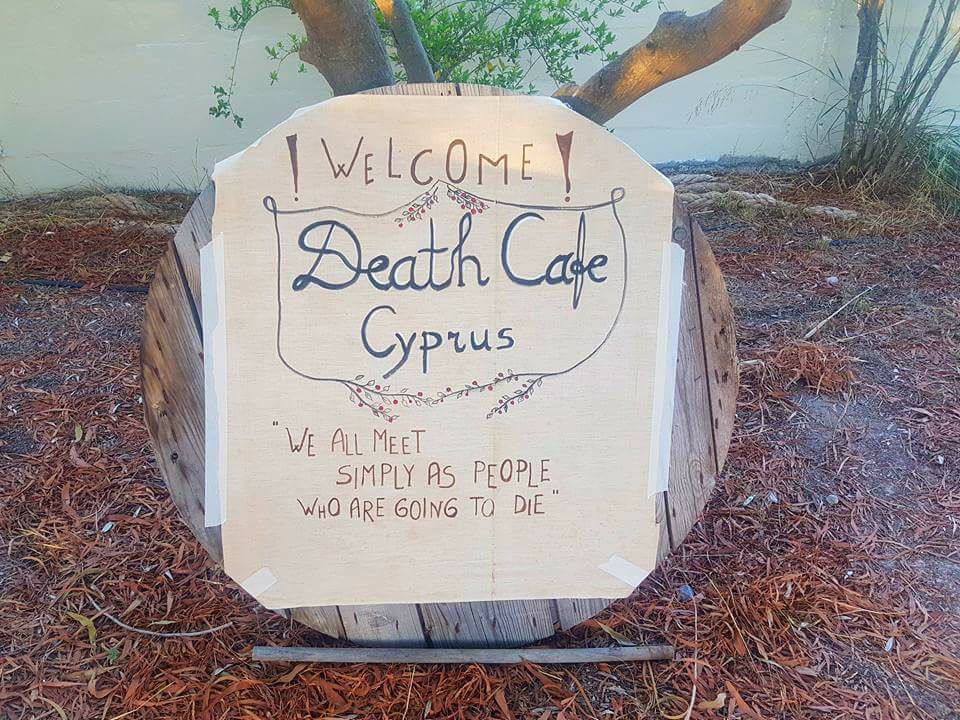 ! WELCOME !
Death Cafe
Cyprus
"WE ALL MEET
SIMPLY AS PEOPLE
WHO ARE GOING TO DIE"